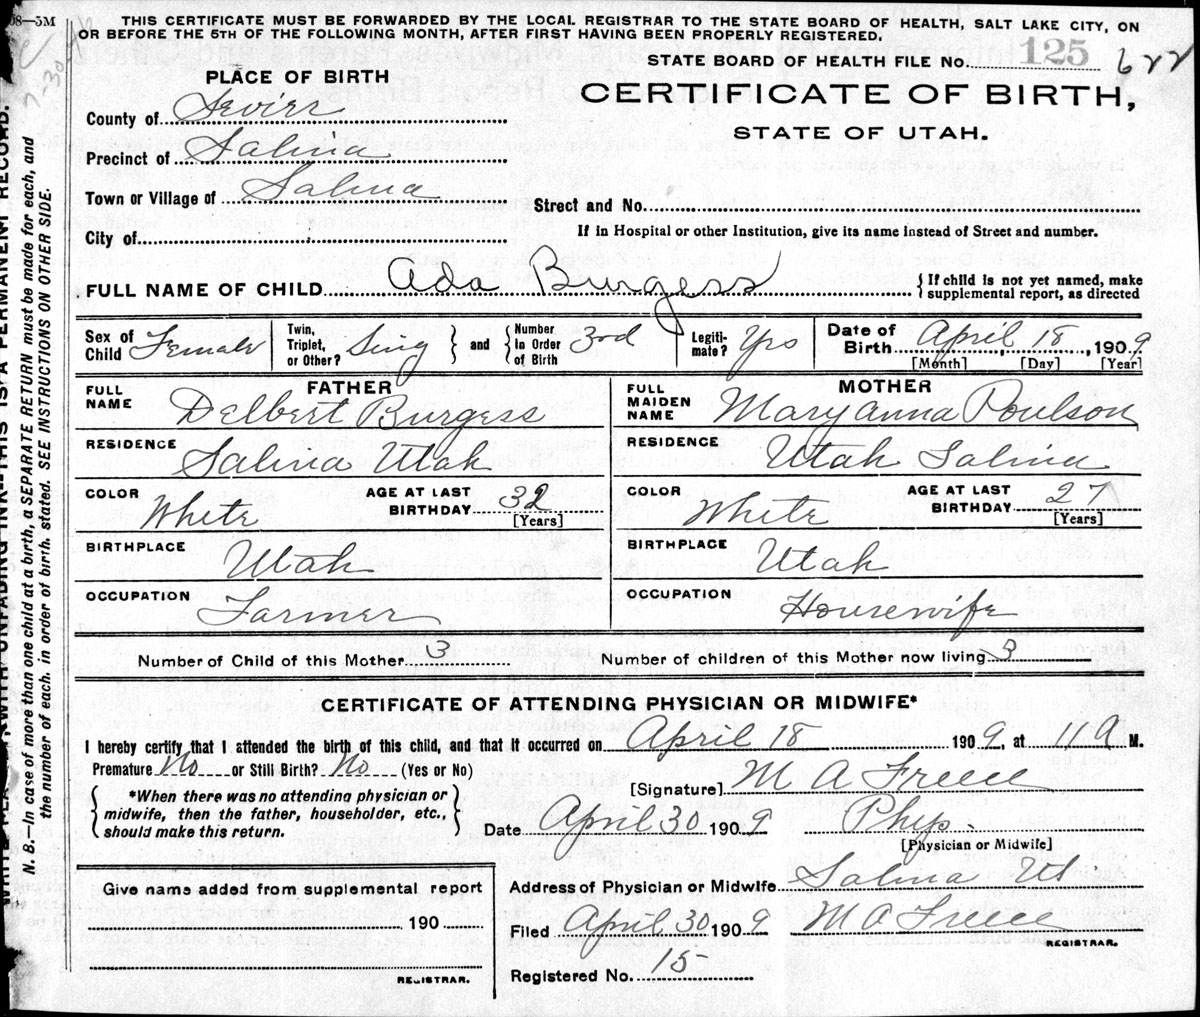 08—5M
THIS CERTIFICATE MUST BE FORWARDED BY THE LOCAL REGISTRAR TO THE STATE BOARD OF HEALTH, SALT LAKE CITY, ON
OR BEFORE THE 5TH OF THE FOLLOWING MONTH, AFTER FIRST HAVING BEEN PROPERLY REGISTERED.
STATE BOARD OF HEALTH FILE No. 125 622
PLACE OF BIRTH
CERTIFICATE OF BIRTH,
STATE OF UTAH.
County of Sevier
Precinct of Salina
Town or Village of Salina
Street and No.
City of
If in Hospital or other Institution, give its name instead of Street and number.
FULL NAME OF CHILD Ada Burgess { If child is not yet named, make supplemental report, as directed
Sex of Child Female Twin, Triplet, or Other? Sing } and { Number In Order of Birth 3rd Legiti- mate? Yes Date of Birth April 18, 1909
[Month] [Day] [Year]
FATHER
FULL NAME Delbert Burgess
RESIDENCE Salina Utah
COLOR White AGE AT LAST BIRTHDAY 32
[Years]
BIRTHPLACE Utah
OCCUPATION Farmer
MOTHER
FULL MAIDEN NAME Mary anna Poulson
RESIDENCE Utah Salina
COLOR White AGE AT LAST BIRTHDAY 27
[Years]
BIRTHPLACE Utah
OCCUPATION Housewife
Number of Child of this Mother 3 Number of children of this Mother now living 3
CERTIFICATE OF ATTENDING PHYSICIAN OR MIDWIFE*
I hereby certify that I attended the birth of this child, and that it occurred on April 18 1909, at 11 a M.
Premature No or Still Birth? No (Yes or No)
*When there was no attending physician or
midwife, then the father, householder, etc.,
should make this return.
[Signature] M A Freece
Date April 30 1909 Phys.
[Physician or Midwife]
Give name added from supplemental report
190
REGISTRAR.
Address of Physician or Midwife Salina Ut
Filed April 30 1909 M A Freece
REGISTRAR.
Registered No. 15
THIS IS A PERMANENT RECORD.
N. B.—In case of more than one child at a birth, a SEPARATE RETURN must be made for each, and
the number of each, in order of birth, stated. SEE INSTRUCTIONS ON OTHER SIDE.